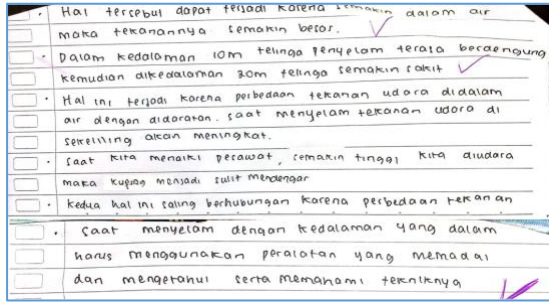 · Hal tersebut dapat terjadi karena semakin dalam air
maka tekanannya semakin besar.
· Dalam kedalaman 10m telinga penyelam terasa berdengung
kemudian dikedalaman 30m telinga semakin sakit
· Hal ini terjadi karena perbedaan tekanan udara didalam
air dengan didaratan. saat menyelam tekanan udara di
sekeliling akan meningkat.
· saat kita menaiki pesawat, semakin tinggi kita diudara
maka kuping menjadi sulit mendengar
· kedua hal ini saling berhubungan karena perbedaan tekanan
· saat menyelam dengan kedalaman yang dalam
harus menggunakan peralatan yang memadai
dan mengetahui serta memahami tekniknya